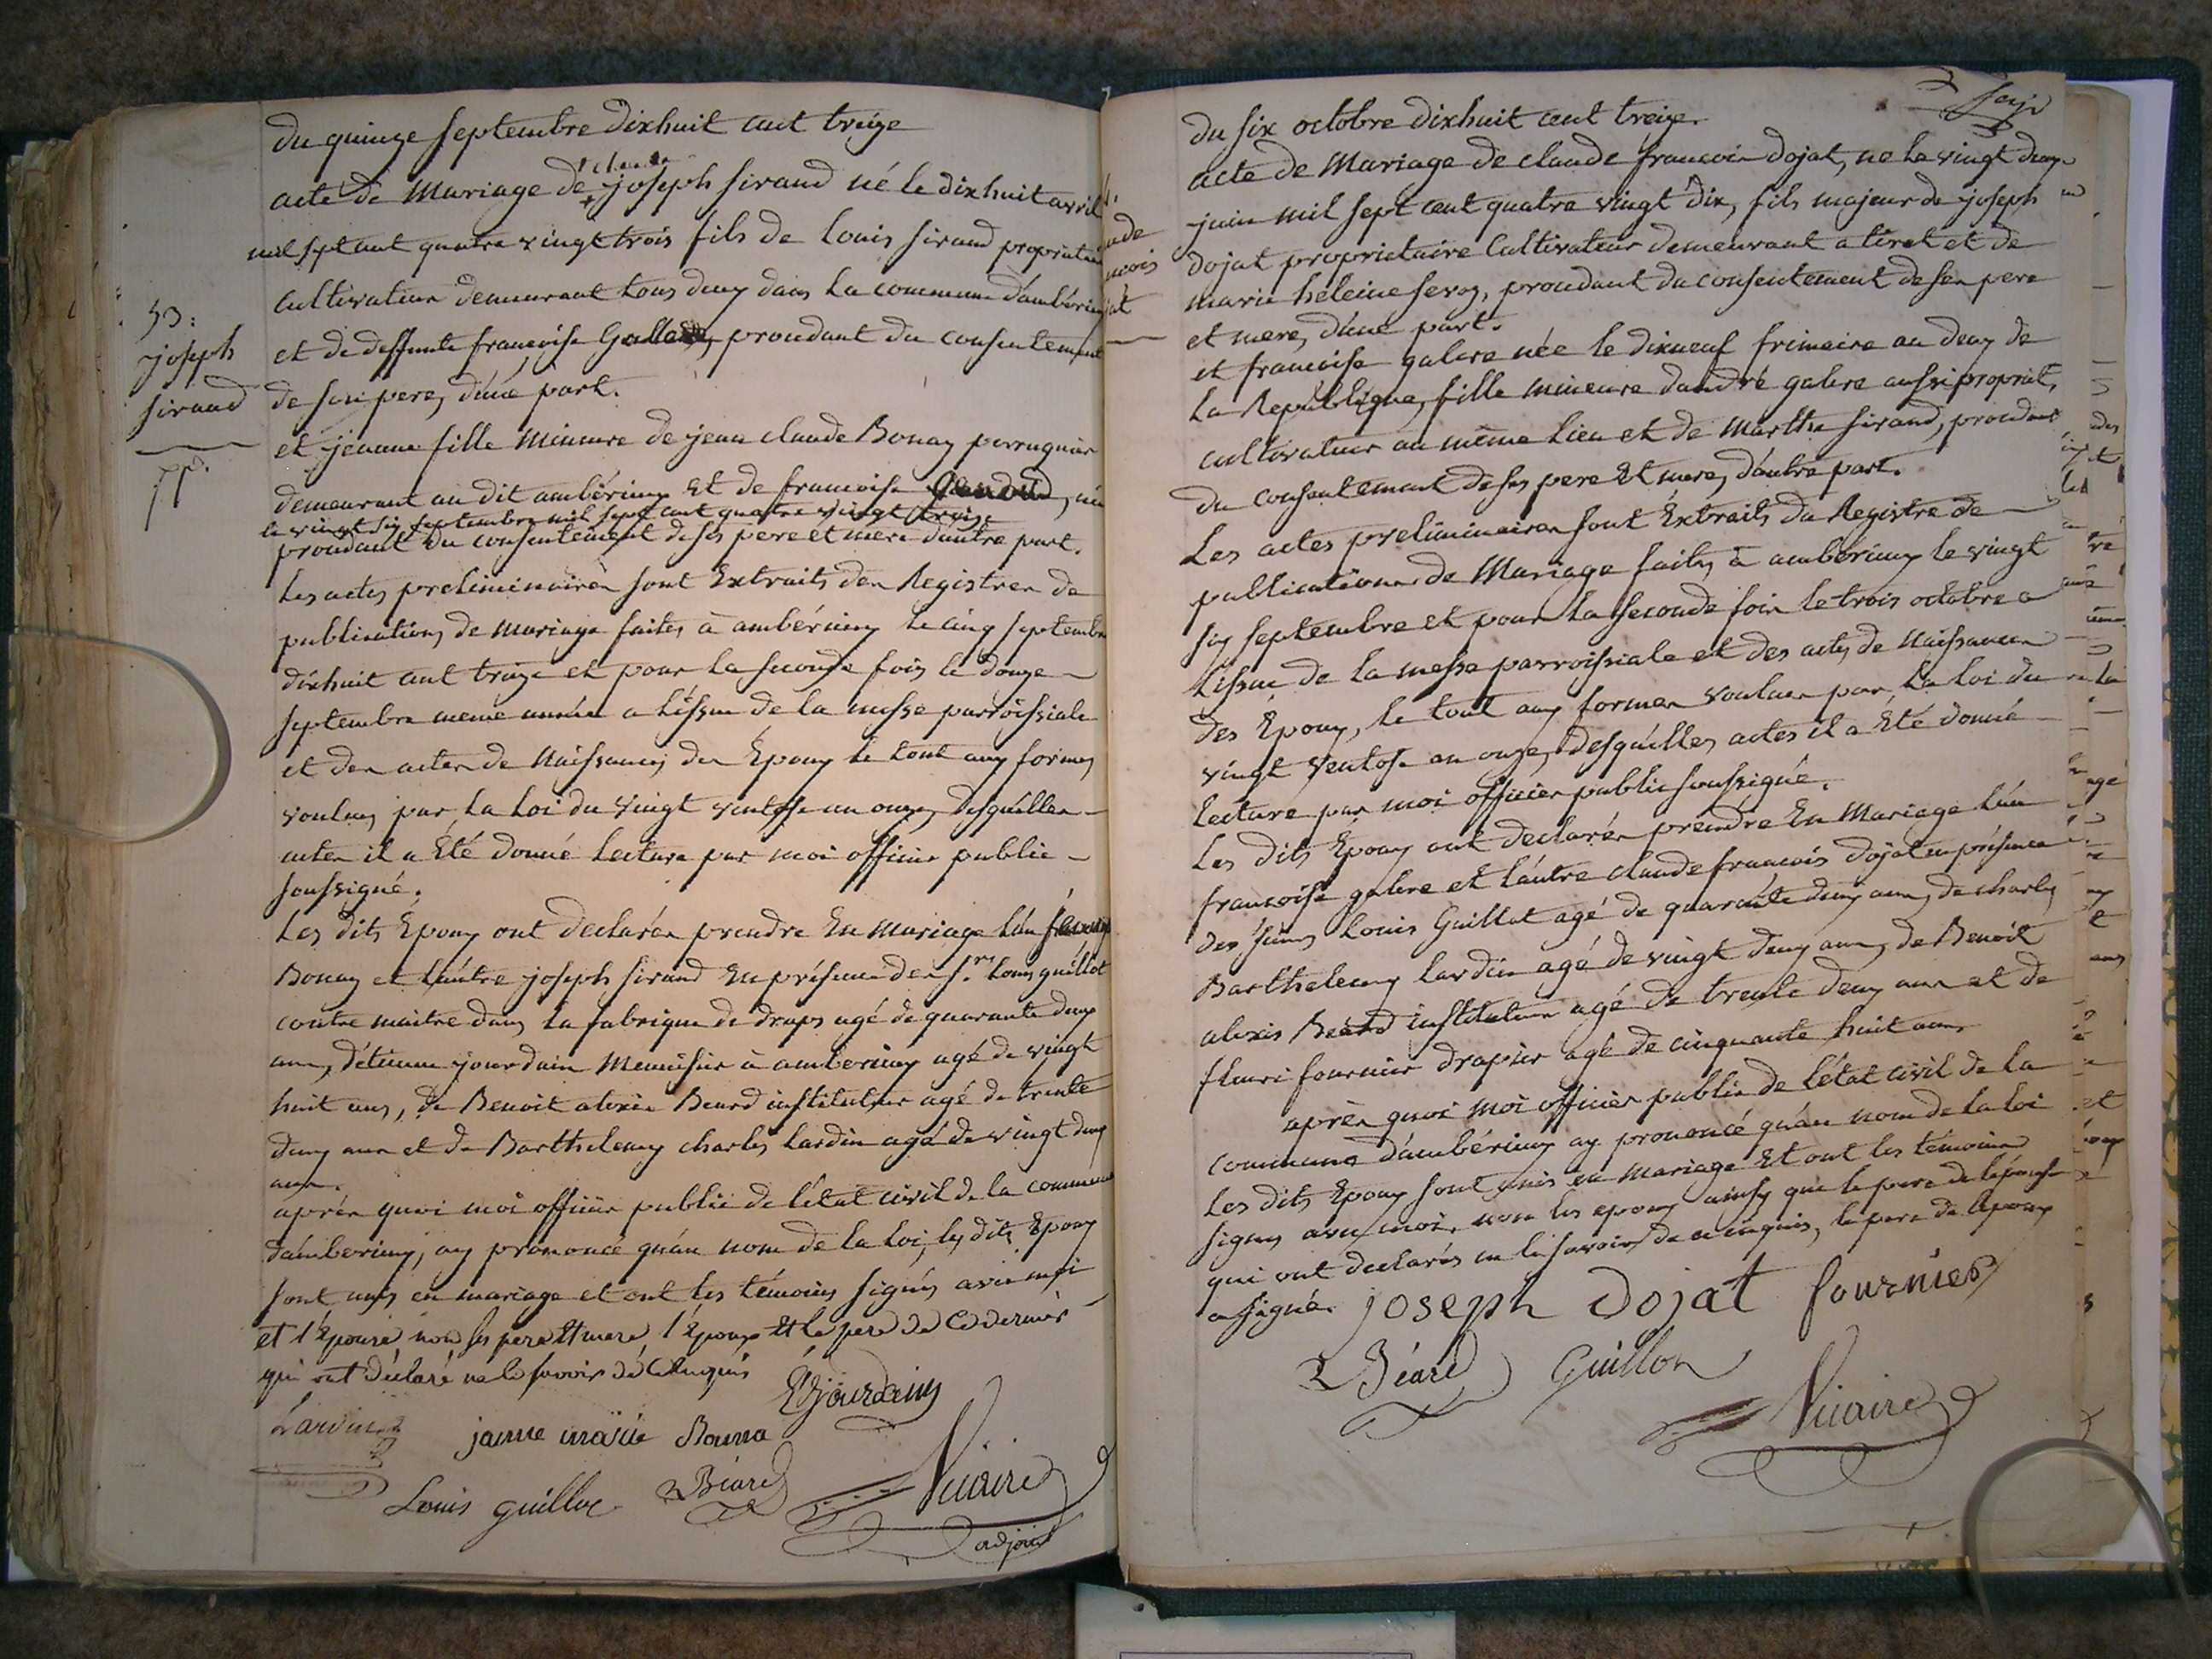 du quinze septembre dixhuit cent treize
acte de Mariage de claude joseph sirand né le dixhuit avril
mil sept cent quatre vingt trois fils de Louis sirand propriétaire
Cultivateur demeurant tous deux dans la commune d'ambérieux
et de deffunte francoise, procedant du consentement
de son pere, d'une part.
53:
joseph
sirand
et jeanne fille mineure de jean claude Bonaz perruquier
demeurant au dit ambérieux et de francoise, née
le vingt six septembre mil sept cent quatre vingt treize
procedant du consentement de ses pere et mere d'autre part.
Les actes preliminaires sont Extraits des Registres de
publications de mariage faites à ambérieux le cinq septembre
dixhuit cent treize et pour la seconde fois le douze
septembre meme année a l'issue de la messe parroissiale
et des actes de Naissances des Epoux le tout aux formes
voulues par la Loi du vingt ventose an onze, desquelles
actes il a Eté donné lecture par moi officier public
soussigné.
Les dits Epoux ont declarés prendre En mariage l'un
Bonaz et l'autre joseph sirand En présence des Srs. Louis guillot
contre maitre dans la fabrique de draps agé de quarante deux
ans, d'étienne jourdain Menuisier à amberieux agé de vingt
huit ans, de Benoit alexis Beard instituteur agé de trente
deux ans et de Barthelemy charles Lardin agé de vingt deux
ans.
après quoi moi officier public de l'état civil de la commune
d'amberieux, ay prononcé qu'au nom de la Loi, les dits Epoux
sont unis en mariage et ont les témoins signés avec moi
et l'Epouse non ses pere et mere, l'Epoux et le pere de ce dernier
qui ont déclaré ne le savoir de ce enquis
E jourdain
Lardin
janne marie Bonna
Louis guillot
Béard
Vicaire
adjoint
du six octobre dixhuit cent treize.
acte de Mariage de claude francois dojat, né le vingt deux
juin mil sept cent quatre vingt dix, fils majeur de joseph
dojat propriétaire Cultivateur demeurant a tiret et de
marie héleine, procedant du consentement de ses pere
et mere, d'une part.
et francoise galere née le dixneuf frimaire an deux de
la Republique, fille mineure d'andré galere aussi propriét.
cultivateur au même lieu et de marthe sirand, procedant
du consentement de ses pere et mere, d'autre part.
Les actes preliminaires sont Extraits du Registre de
publications de Mariage faites à ambérieux le vingt
six septembre et pour la seconde fois le trois octobre a
l'issue de la messe parroissiale et des actes de Naissances
des Epoux, le tout aux formes voulues par la Loi du
vingt ventose an onze, desquelles actes il a Eté donné
lecture par moi officier public soussigné.
Les dits Epoux ont declarés prendre En Mariage l'un
francoise galere et l'autre claude francois dojat en présence
des sieurs Louis Guillot agé de quarante deux ans, de charles
Barthelemy Lardin agé de vingt deux ans, de Benoit
alexis Beard instituteur agé de trente deux ans et de
fleuri fournier drapier agé de cinquante huit ans
après quoi moi officier public de l'état civil de la
commune d'ambérieux ay prononcé qu'au nom de la loi
Les dits Epoux sont unis en mariage et ont les témoins
signés avec moi, non les epoux ainsy que le pere de l'épouse
qui ont declarés ne le savoir de ce enquis, le pere de l'epoux
a signé.
joseph dojat
fournier
Béard
Guillot
Vicaire